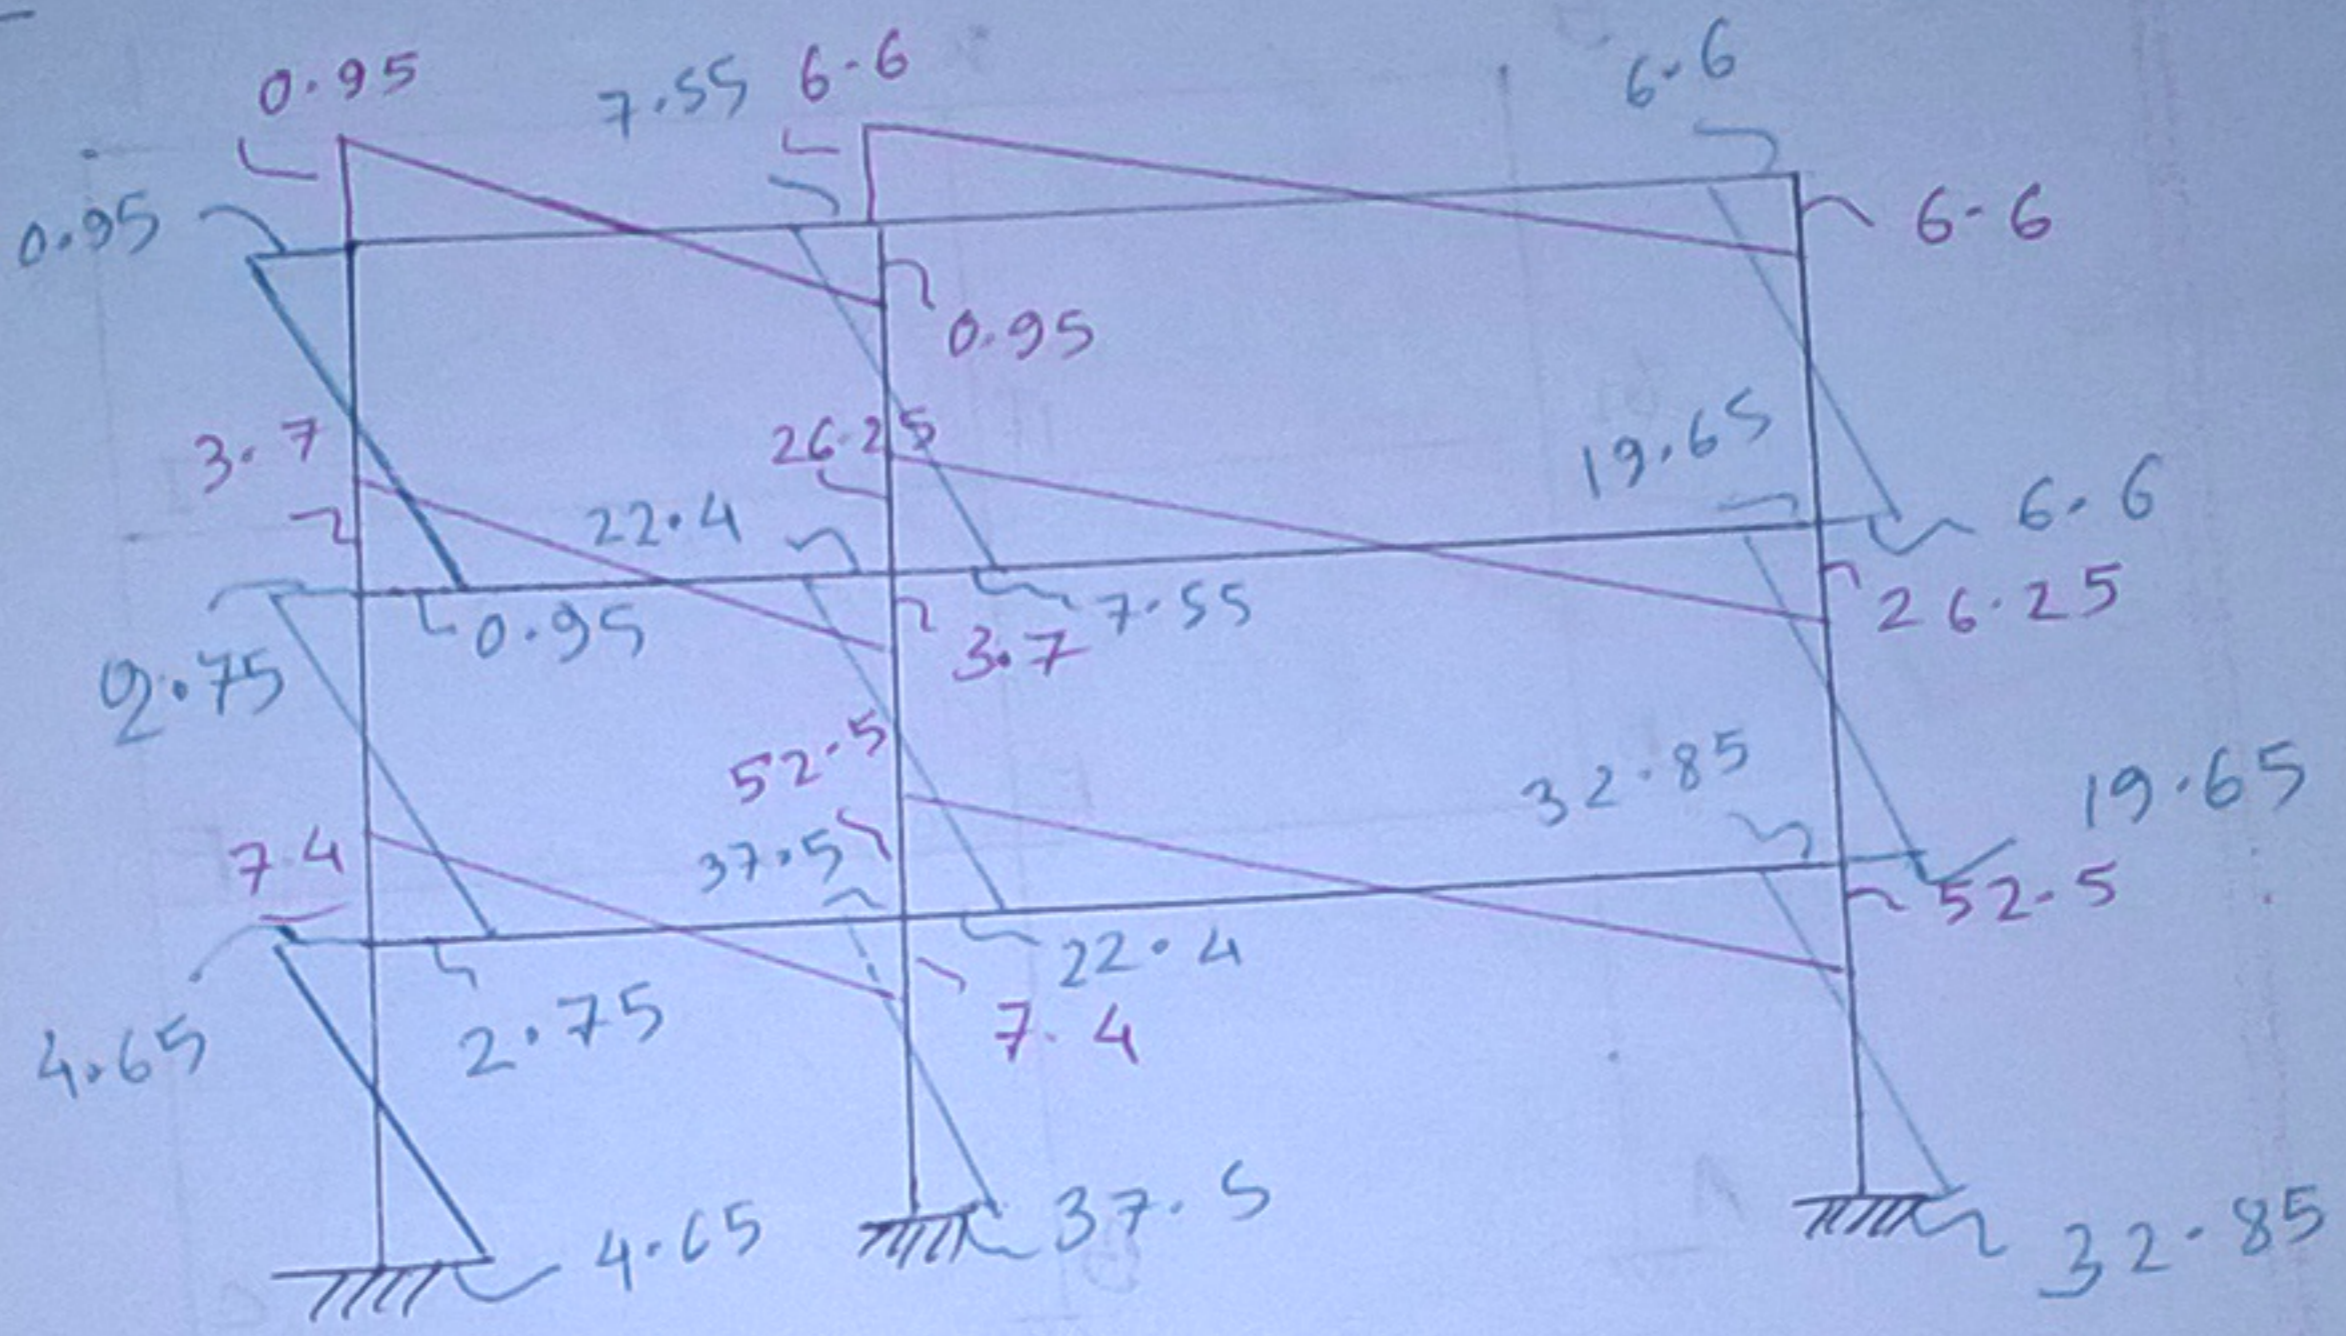 0.95
7.55
6.6
6.6
0.95
6.6
0.95
3.7
26.25
19.65
22.4
6.6
26.25
0.95
7.55
3.7
2.75
52.5
32.85
19.65
7.4
37.5
52.5
22.4
2.75
7.4
4.65
4.65
37.5
32.85